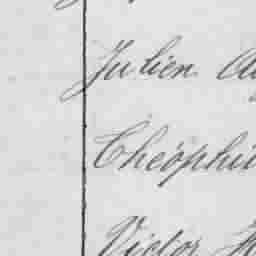 Julien
Théophi
Victor